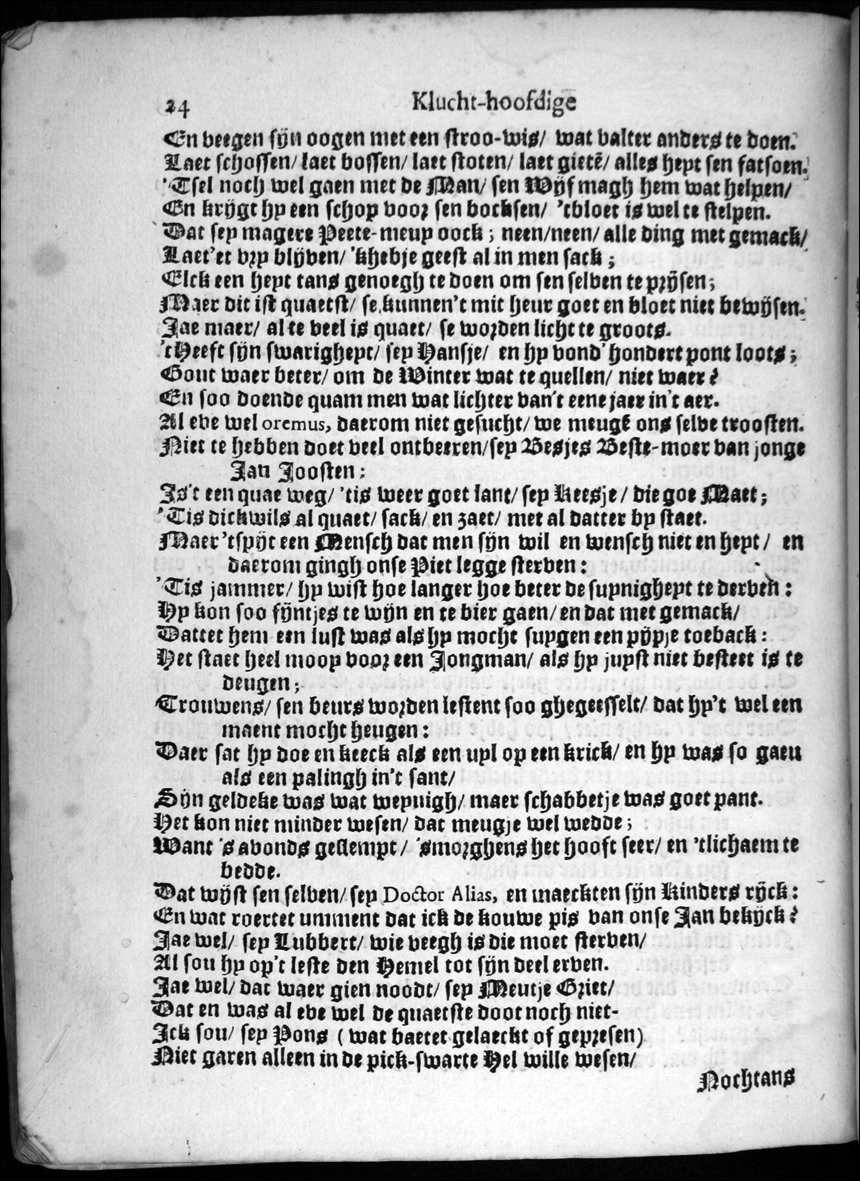 24 Klucht-hoofdige
En veegen sijn oogen met een stroo-wis/ wat valter anders te doen.
Laet schossen/ laet bossen/ laet stoten/ laet gietē/ alles heyt sen fatsoen.
'Tsel noch wel gaen met de Man/ sen Wijf magh hem wat helpen/
En krijgt hy een schop voor sen bocksen/ 'tbloet is wel te stelpen.
Dat sey magere Peete-meuy oock; neen/neen/ alle ding met gemack/
Laet'et vry blijven/ 'khebje geest al in men sack;
Elck een heyt tans genoegh te doen om sen selven te prijsen;
Maer dit ist quaetst/ se kunnen't mit heur goet en bloet niet bewijsen.
Jae maer/ al te veel is quaet/ se worden licht te groots.
'tHeeft sijn swarigheyt/ sey Hansje/ en hy vond' hondert pont loots;
Gout waer beter/ om de Winter wat te quellen/ niet waer?
En soo doende quam men wat lichter van't eene jaer in't aer.
Al eve wel oremus, daerom niet gesucht/ we meugē ons selve troosten.
Niet te hebben doet veel ontbeeren/sey Besjes Beste-moer van jonge
Jan Joosten:
Is't een quae weg/ 'tis weer goet lant/ sey Keesje/ die goe Maet;
'Tis dickwils al quaet/ sack/ en zaet/ met al datter by staet.
Maer 'tspijt een Mensch dat men sijn wil en wensch niet en heyt/ en
daerom gingh onse Piet legge sterven:
'Tis jammer/ hy wist hoe langer hoe beter de suynigheyt te derven:
Hy kon soo fijntjes te wijn en te bier gaen/ en dat met gemack/
Dattet hem een lust was als hy mocht suygen een pijpje toeback:
Het staet heel mooy voor een Jongman/ als hy juyst niet besteet is te
deugen;
Trouwens/ sen beurs worden lestent soo ghegeesselt/ dat hy't wel een
maent mocht heugen:
Daer sat hy doe en keeck als een uyl op een krick/ en hy was so gaeu
als een palingh in't sant/
Sijn geldeke was wat weynigh/ maer schabbetje was goet pant.
Het kon niet minder wesen/ dat meugje wel wedde;
Want 's avonds gestempt/ 'smorghens het hooft seer/ en 'tlichaem te
bedde.
Dat wijst sen selven/ sey Doctor Alias, en maeckten sijn Kinders rijck:
En wat roertet umment dat ick de kouwe pis van onse Jan bekijck?
Jae wel/ sey Lubbert/ wie veegh is die moet sterven/
Al sou hy op't leste den Hemel tot sijn deel erven.
Jae wel/ dat waer gien noodt/ sey Meutje Griet/
Dat en was al eve wel de quaetste doot noch niet-
Ick sou/ sey Pons (wat baetet gelaeckt of gepresen)
Niet garen alleen in de pick-swarte Hel wille wesen/
Nochtans